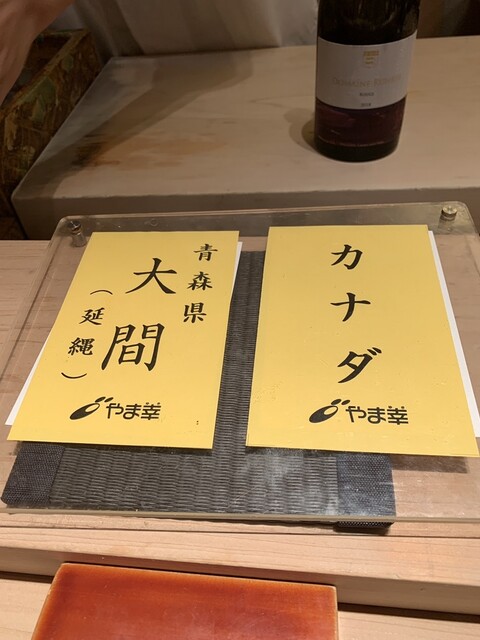 青森県
大間
（延縄）
やま幸
カナダ
やま幸